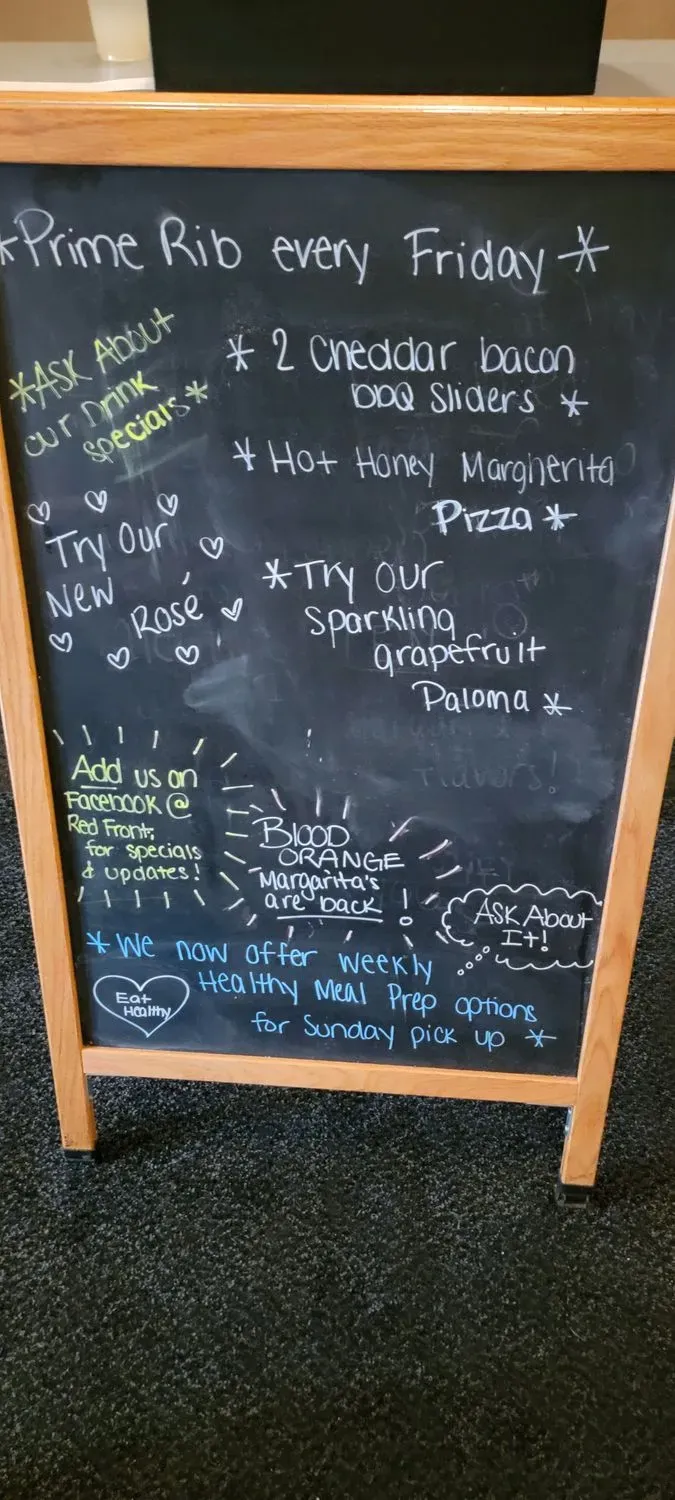 *Prime Rib every Friday*
*ASK About
our Drink
specials*
* 2 Cheddar bacon
BBQ Sliders *
* Hot Honey Margherita
Pizza *
Try Our
New
Rosé
* Try our
sparkling
grapefruit
Paloma *
Add us on
Facebook @
Red Front,
for specials
& updates!
BLOOD
ORANGE
Margarita's
are back!
ASK About
It!
* We now offer weekly
Healthy Meal Prep options
for Sunday pick up *
Eat
Healthy
flavors!